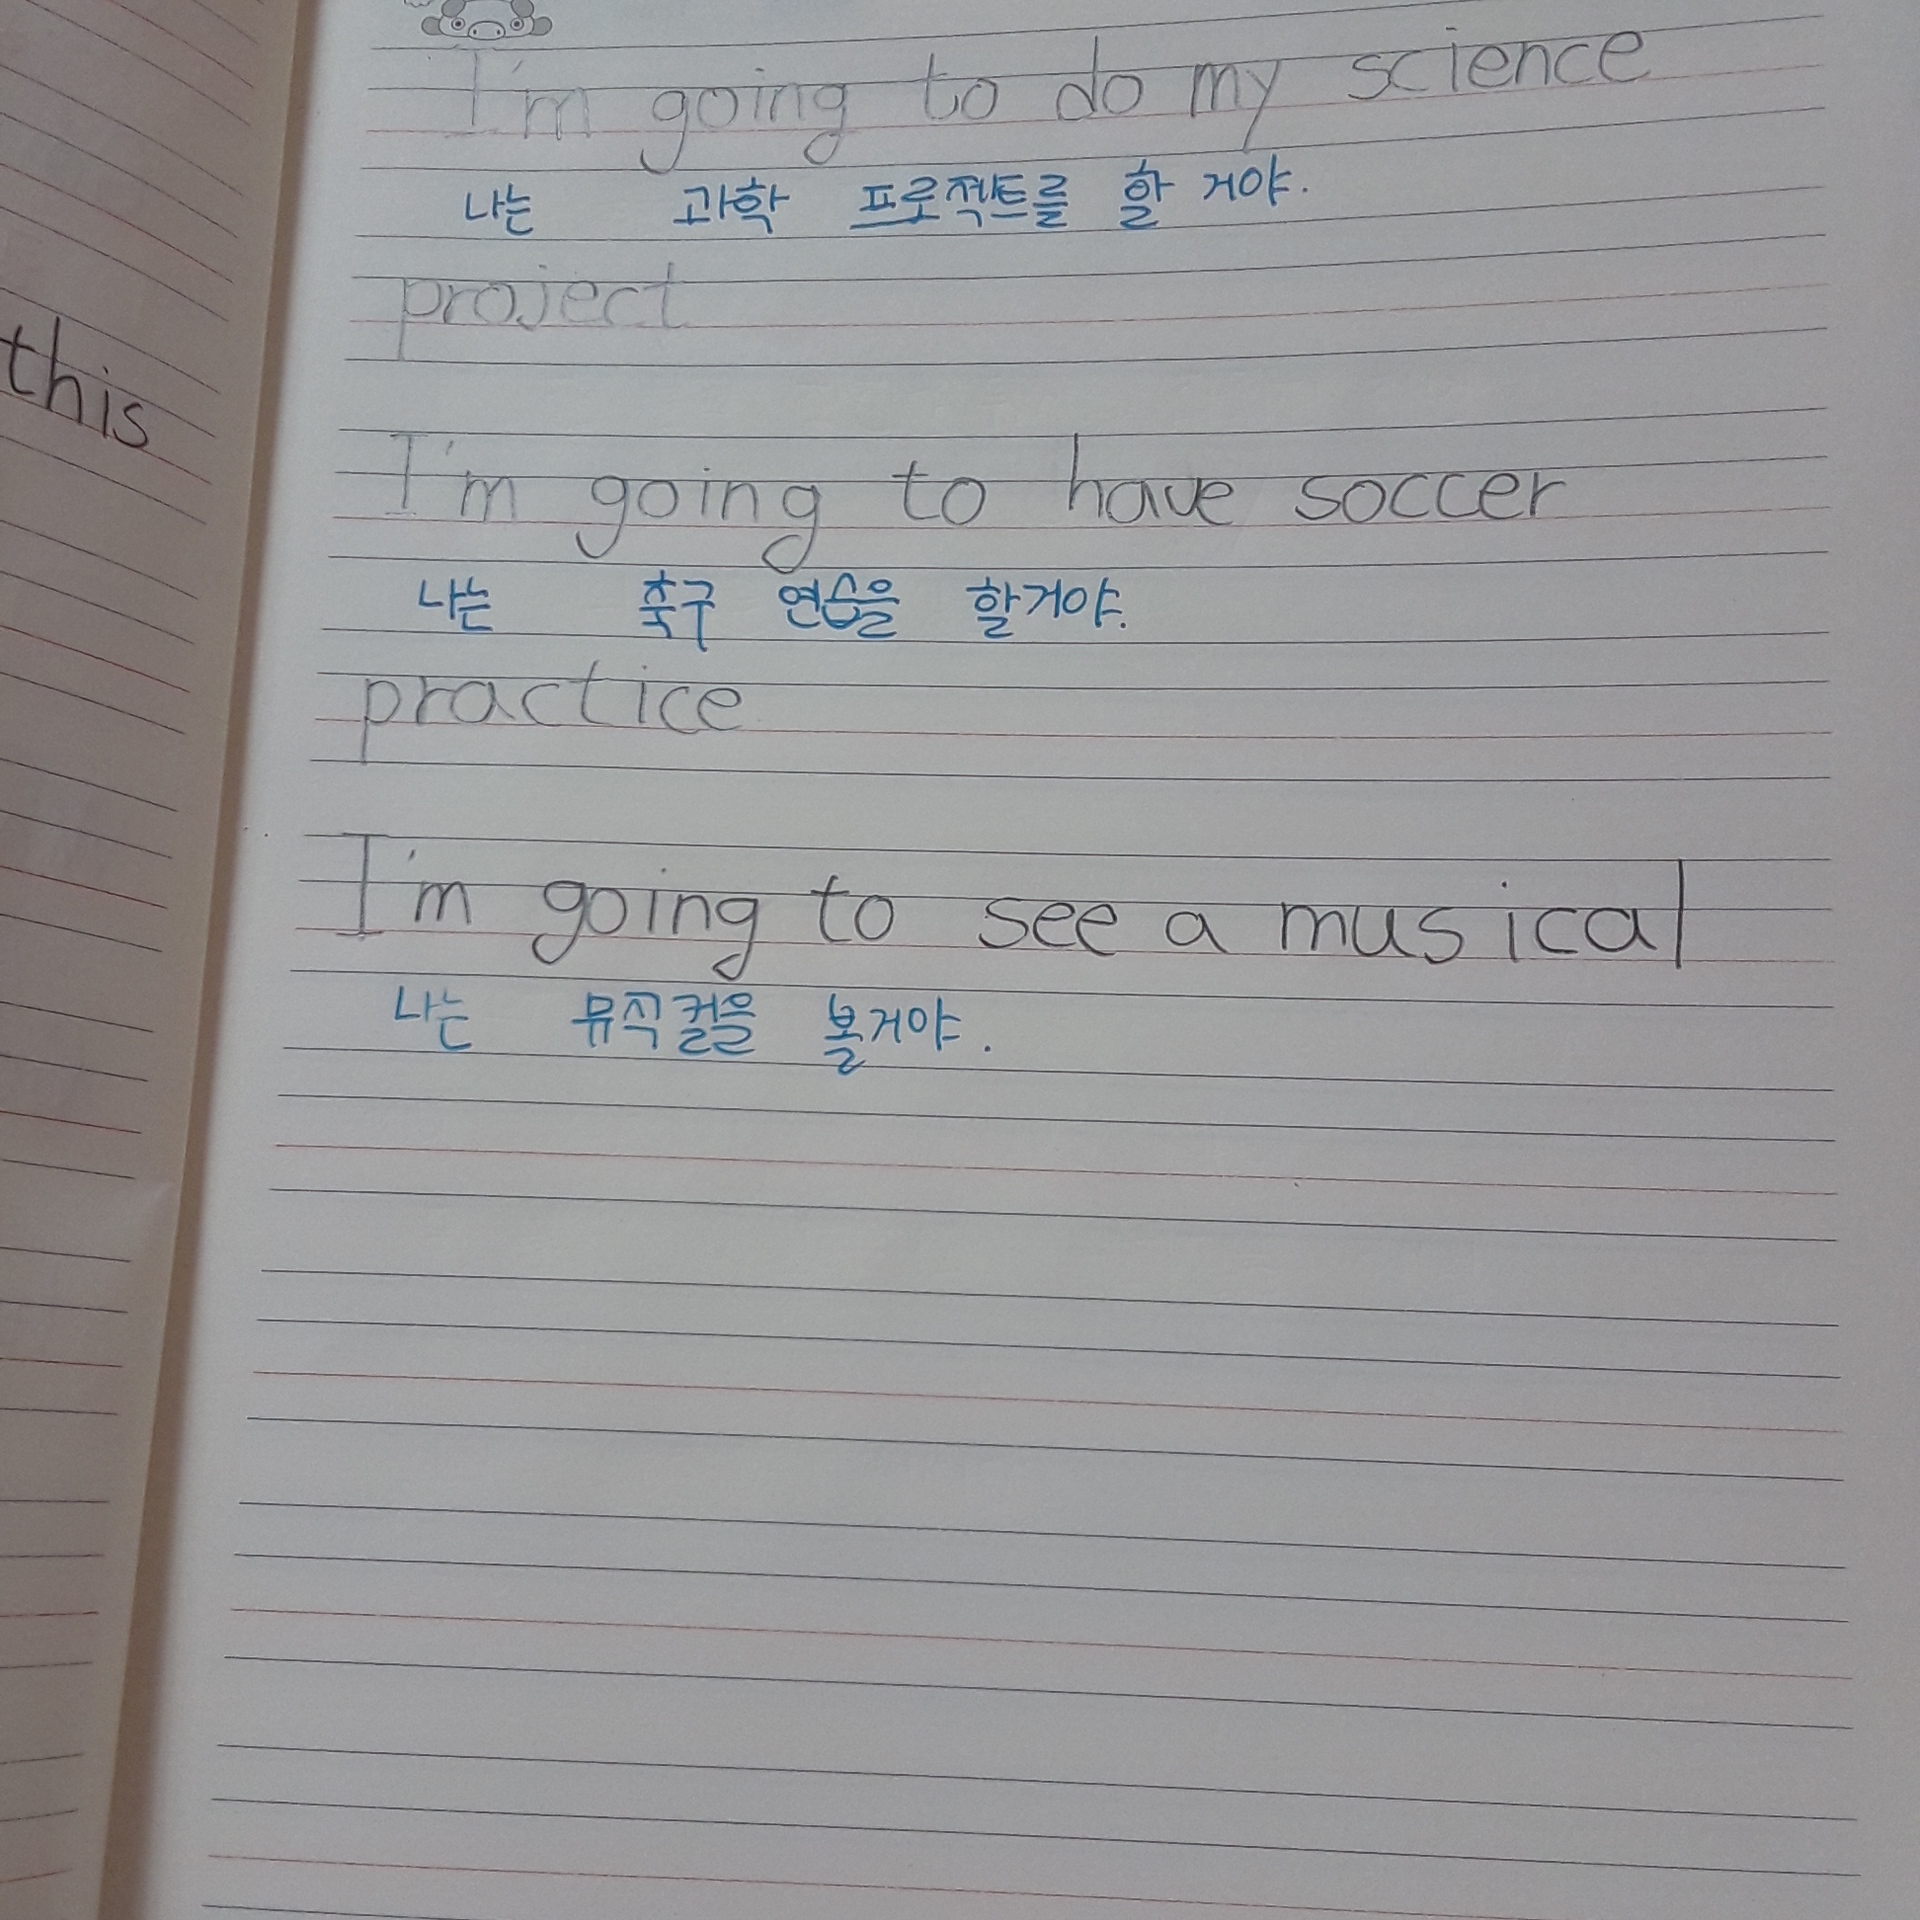 I'm going to do my science
나는 과학 프로젝트를 할 거야.
project
this
I'm going to have soccer
나는 축구 연습을 할거야.
practice
I'm going to see a musical
나는 뮤직컬을 볼거야.